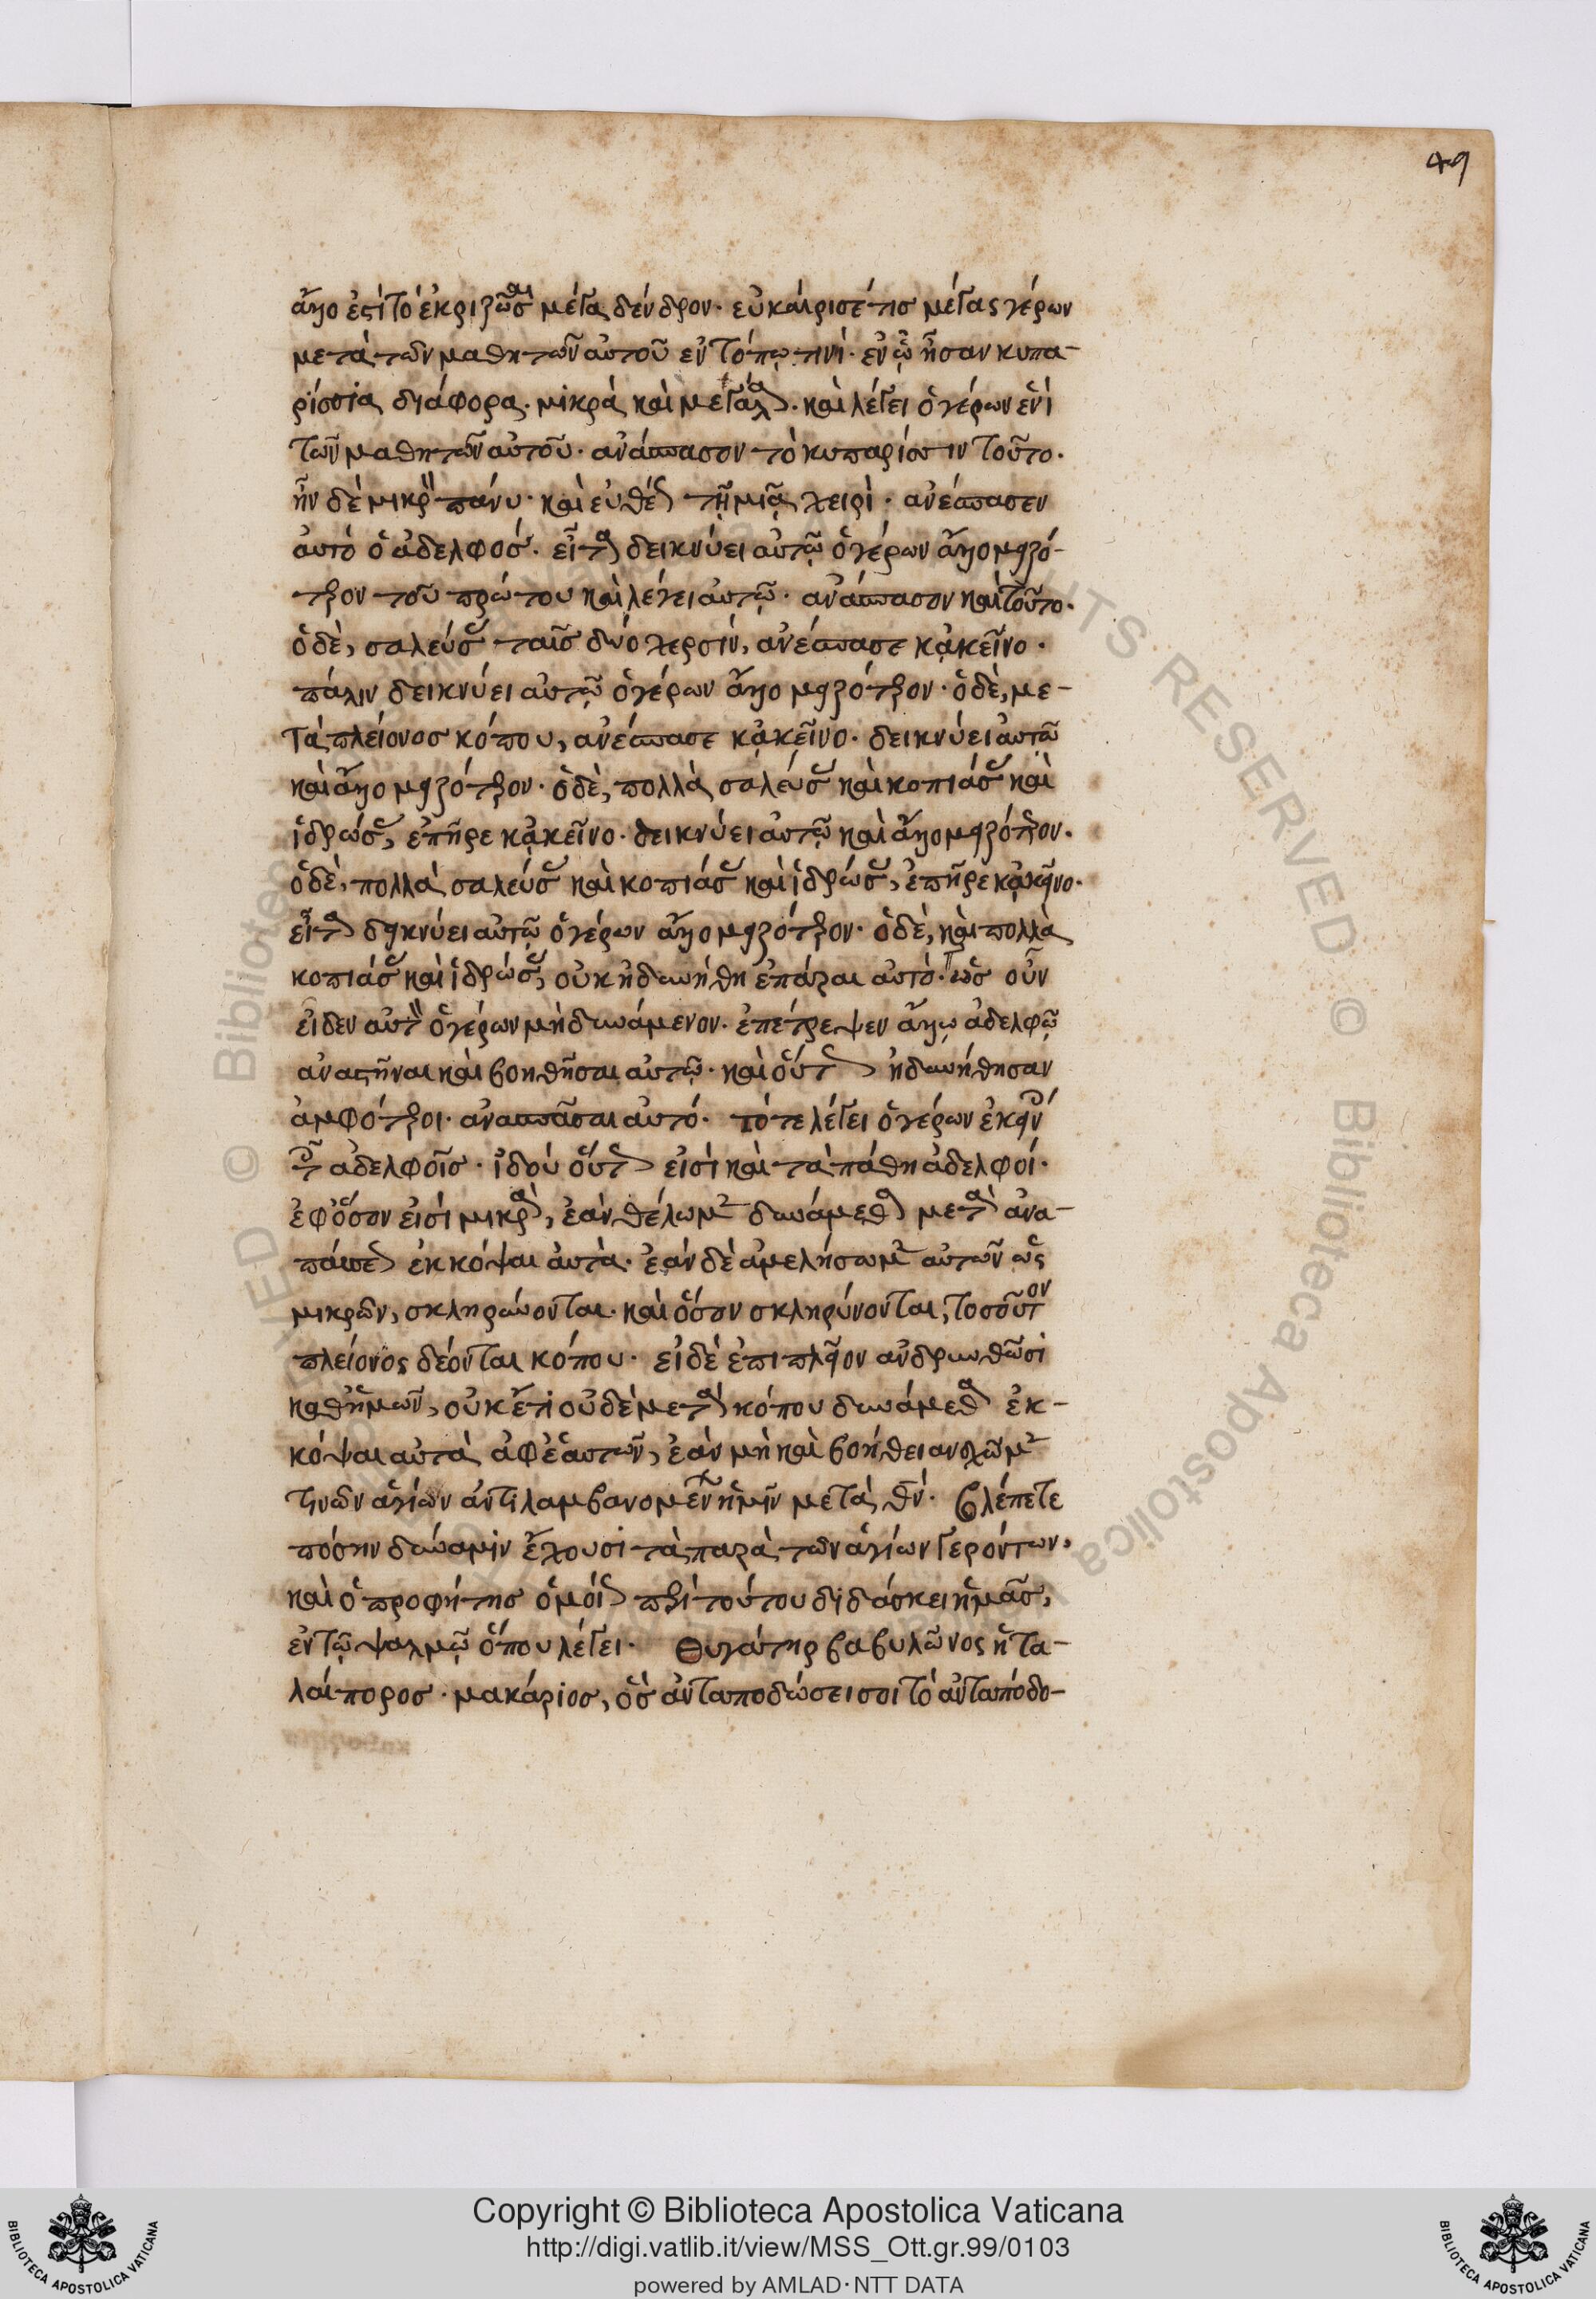 49
ἄλλο ἐστὶ τὸ ἐκριζῶσαι μέγα δένδρον. εὐκαίρισέ τις μέγας γέρων
μετὰ τῶν μαθητῶν αὐτοῦ ἐν τόπῳ τινί. ἐν ᾧ ἦσαν κυπα-
ρίσσια διάφορα. μικρὰ καὶ μεγάλα. καὶ λέγει ὁ γέρων ἑνὶ
τῶν μαθητῶν αὐτοῦ. ἀνάσπασον τὸ κυπαρίσσιν τοῦτο.
ἦν δὲ μικρὸν πάνυ. καὶ εὐθέως τῇ μιᾷ χειρὶ. ἀνέσπασεν
αὐτὸ ὁ ἀδελφός. εἶτα δεικνύει αὐτῷ ὁ γέρων ἄλλο μειζό-
τερον τοῦ πρώτου καὶ λέγει αὐτῷ. ἀνάσπασον καὶ τοῦτο.
ὁ δὲ, σαλεύσας ταῖς δυό χερσίν, ἀνέσπασε κᾀκεῖνο.
πάλιν δεικνύει αὐτῷ ὁ γέρων ἄλλο μειζότερον. ὁ δὲ, με-
τὰ πλείονος κόπου, ἀνέσπασε κᾀκεῖνο. δεικνύει αὐτῷ
καὶ ἄλλο μειζότερον. ὁ δὲ, πολλὰ σαλεύσας καὶ κοπιάσας καὶ
ἱδρώσας, ἐπῆρε κᾀκεῖνο. δεικνύει αὐτῷ καὶ ἄλλο μειζότερον.
ὁ δὲ, πολλὰ σαλεύσας καὶ κοπιάσας καὶ ἱδρώσας, ἐπῆρε κᾀκεῖνο.
εἶτα δεικνύει αὐτῷ ὁ γέρων ἄλλο μειζότερον. ὁ δὲ, καὶ πολλὰ
κοπιάσας καὶ ἱδρώσας, οὐκ ἠδυνήθη ἐπάραι αὐτό. ὡς οὖν
εἶδεν αὐτὸν ὁ γέρων μὴ δυνάμενον. ἐπέτρεψεν ἄλλῳ ἀδελφῷ
ἀναστῆναι καὶ βοηθῆσαι αὐτῷ. καὶ οὕτως ἠδυνήθησαν
ἀμφότεροι. ἀνασπᾶσαι αὐτό. τότε λέγει ὁ γέρων ἐκεῖνος
τοῖς ἀδελφοῖς. ἰδοὺ οὕτως εἰσὶ καὶ τὰ πάθη ἀδελφοί.
ἐφόσον εἰσὶ μικρὰ, ἐὰν θέλωμεν δυνάμεθα μετὰ ἀνα-
παύσεως ἐκκόψαι αὐτὰ. ἐὰν δὲ ἀμελήσωμεν αὐτῶν ὡς
μικρῶν, σκληρύνονται. καὶ ὅσον σκληρύνονται, τοσοῦτον
πλείονος δέονται κόπου. εἰ δὲ ἐπιπλεῖον ἀνδρυνθῶσι
καθ' ἡμῶν, οὐκ ἔτι οὐδὲ μετὰ κόπου δυνάμεθα ἐκ-
κόψαι αὐτὰ ἀφ' ἑαυτῶν, ἐὰν μὴ καὶ βοήθειαν σχῶμεν
τινῶν ἁγίων ἀντιλαμβανομένων ἡμῖν μετὰ θν. βλέπετε
πόσην δύναμιν ἔχουσι τὰ παρὰ τῶν ἁγίων γερόντων,
καὶ ὁ προφήτης ὁμοίως περὶ τούτου διδάσκει ἡμᾶς,
ἐν τῷ ψαλμῷ ὅπου λέγει. Θυγάτηρ βαβυλῶνος ἡ τα-
λαίπορος. μακάριος, ὃς ἀνταποδώσει σοι τὸ ἀνταπόδο-
Copyright © Biblioteca Apostolica Vaticana
http://digi.vatlib.it/view/MSS_Ott.gr.99/0103
powered by AMLAD·NTT DATA
BIBLIOTECA APOSTOLICA VATICANA
BIBLIOTECA APOSTOLICA VATICANA